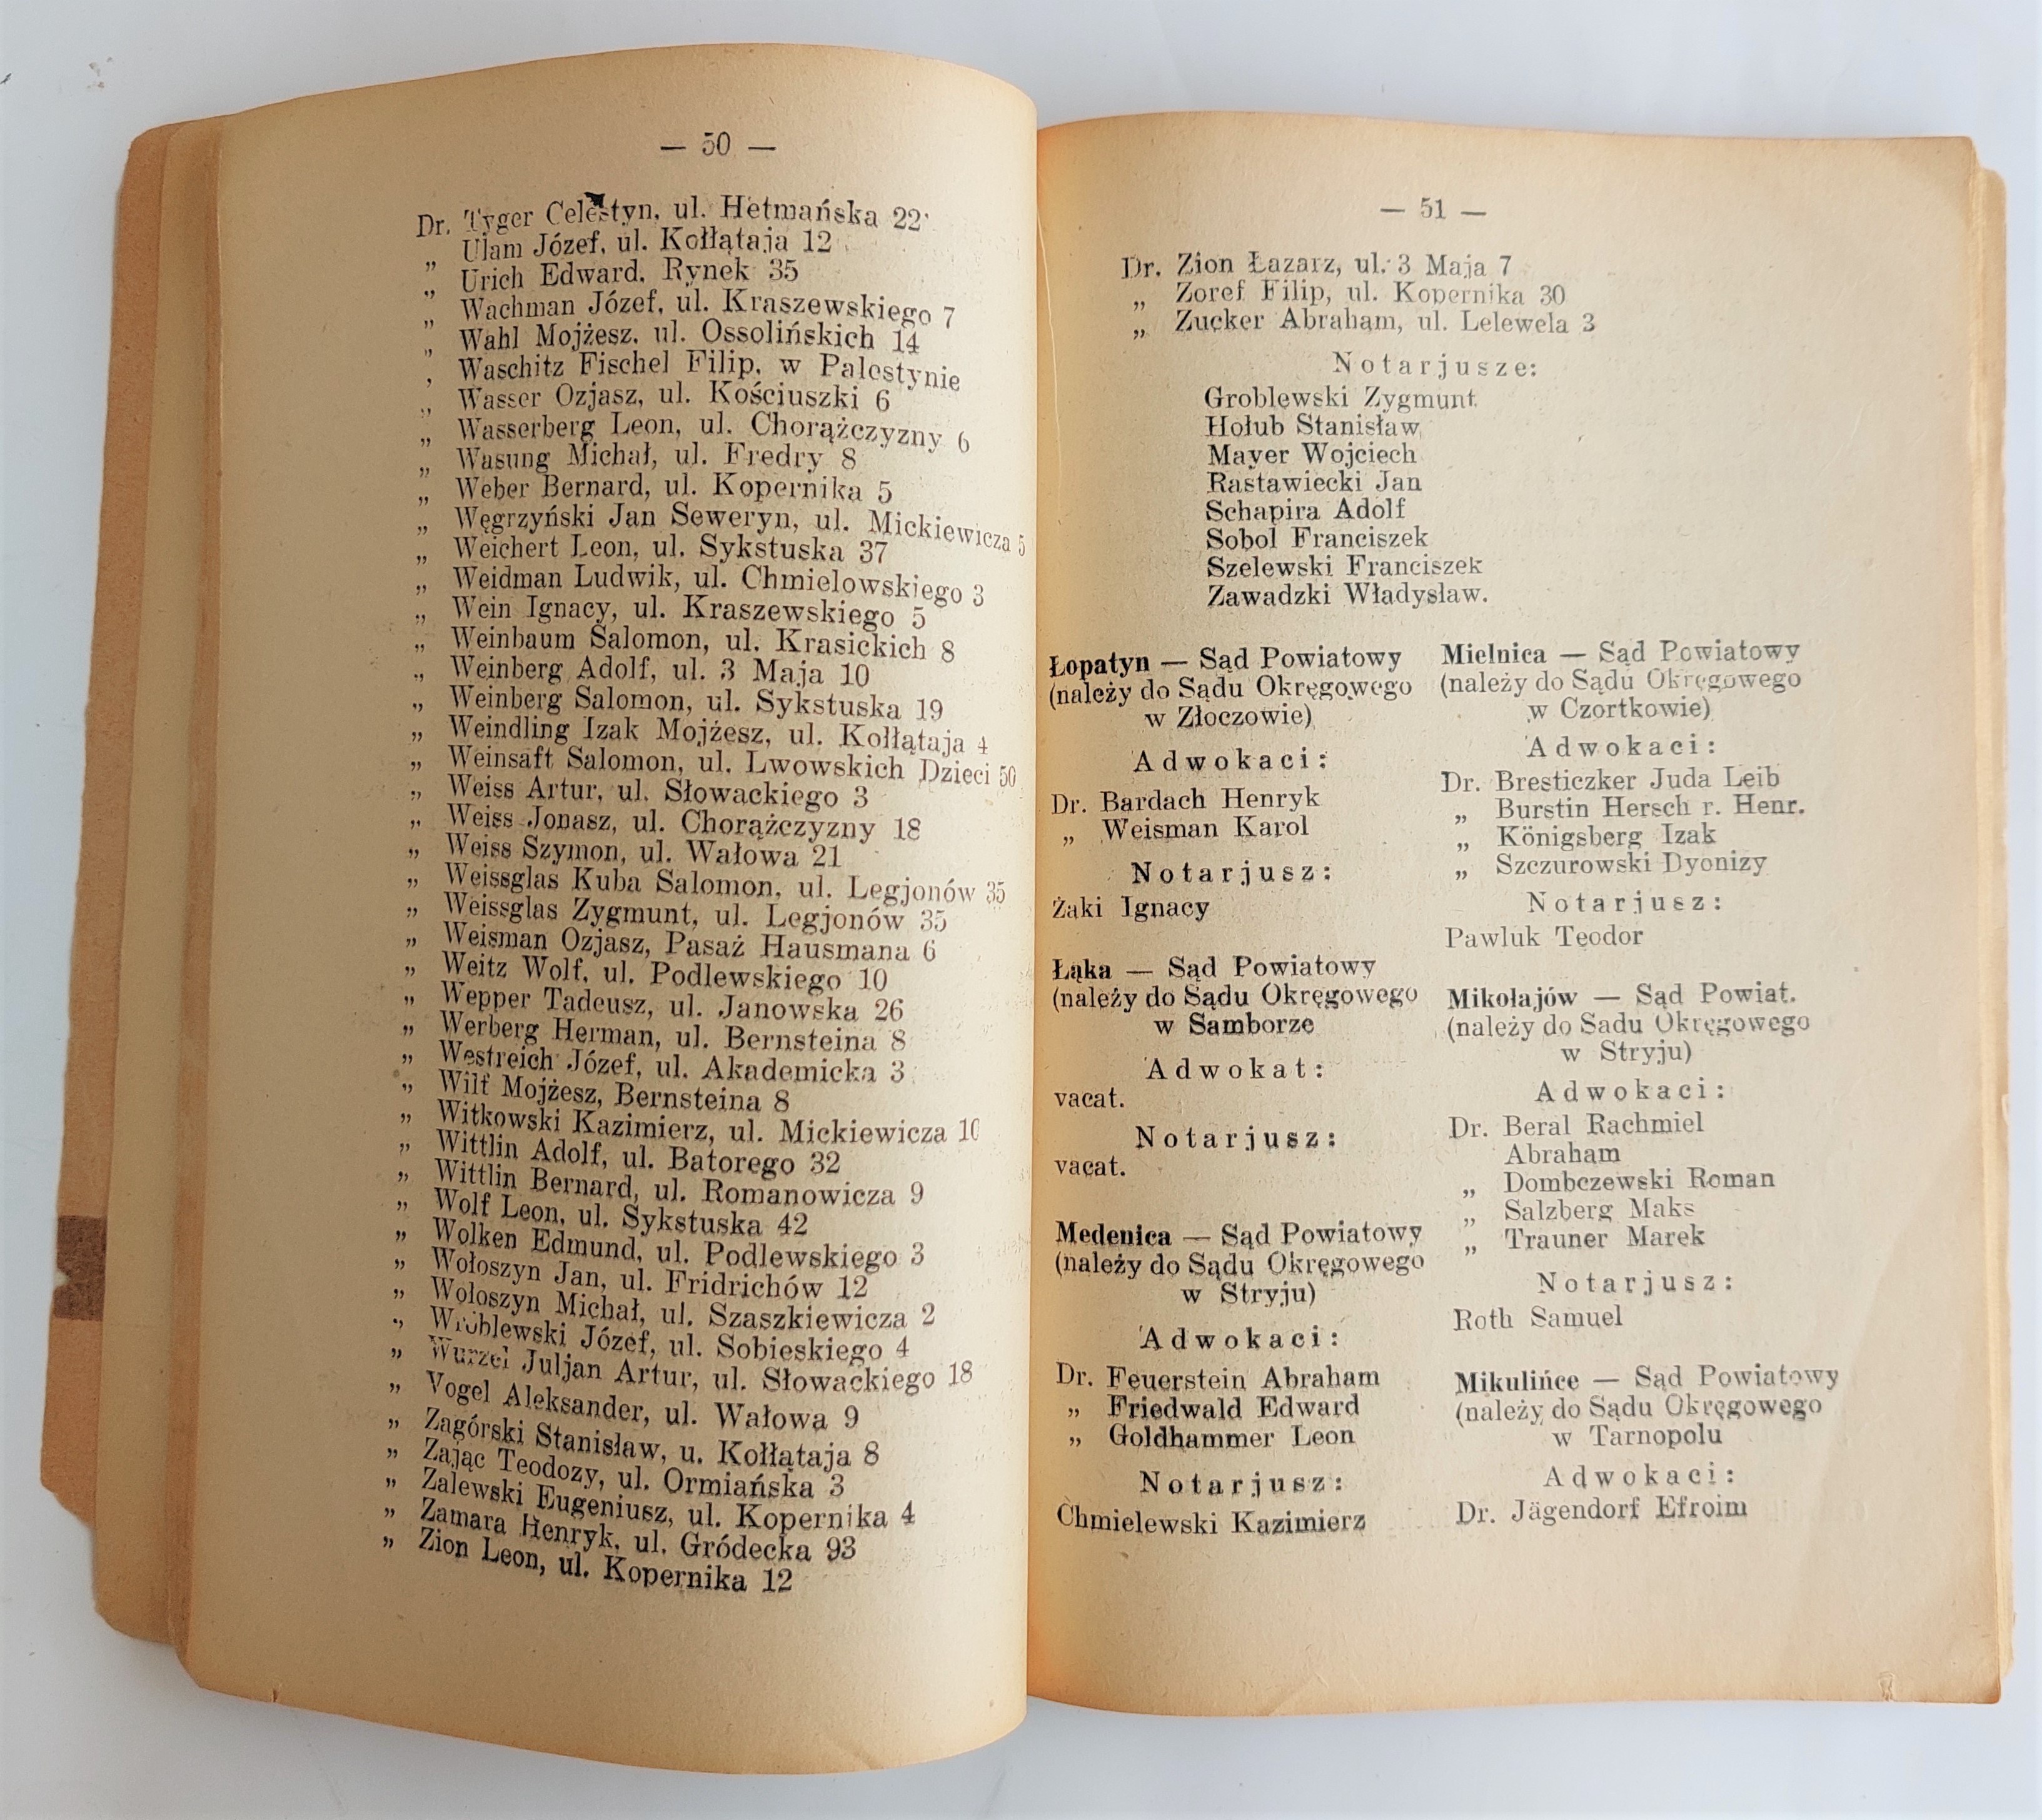 — 50 —
Dr. Tyger Celestyn, ul. Hetmańska 22
„ Ulam Józef, ul. Kołłątaja 12
„ Urich Edward, Rynek 35
„ Wachman Józef, ul. Kraszewskiego 7
„ Wahl Mojżesz, ul. Ossolińskich 14
„ Waschitz Fischel Filip, w Palestynie
„ Wasser Ozjasz, ul. Kościuszki 6
„ Wasserberg Leon, ul. Chorążczyzny 6
„ Wasung Michał, ul. Fredry 8
„ Weber Bernard, ul. Kopernika 5
„ Węgrzyński Jan Seweryn, ul. Mickiewicza 5
„ Weichert Leon, ul. Sykstuska 37
„ Weidman Ludwik, ul. Chmielowskiego 3
„ Wein Ignacy, ul. Kraszewskiego 5
„ Weinbaum Salomon, ul. Krasickich 8
„ Weinberg Adolf, ul. 3 Maja 10
„ Weinberg Salomon, ul. Sykstuska 19
„ Weindling Izak Mojżesz, ul. Kołłątaja 4
„ Weinsaft Salomon, ul. Lwowskich Dzieci 50
„ Weiss Artur, ul. Słowackiego 3
„ Weiss Jonasz, ul. Chorążczyzny 18
„ Weiss Szymon, ul. Wałowa 21
„ Weissglas Kuba Salomon, ul. Legjonów 35
„ Weissglas Zygmunt, ul. Legjonów 35
„ Weisman Ozjasz, Pasaż Hausmana 6
„ Weitz Wolf, ul. Podlewskiego 10
„ Wepper Tadeusz, ul. Janowska 26
„ Werberg Herman, ul. Bernsteina 8
„ Westreich Józef, ul. Akademicka 3
„ Wilf Mojżesz, Bernsteina 8
„ Witkowski Kazimierz, ul. Mickiewicza 10
„ Wittlin Adolf, ul. Batorego 32
„ Wittlin Bernard, ul. Romanowicza 9
„ Wolf Leon, ul. Sykstuska 42
„ Wolken Edmund, ul. Podlewskiego 3
„ Wołoszyn Jan, ul. Fridrichów 12
„ Wołoszyn Michał, ul. Szaszkiewicza 2
„ Wróblewski Józef, ul. Sobieskiego 4
„ Wurzel Juljan Artur, ul. Słowackiego 18
„ Vogel Aleksander, ul. Wałowa 9
„ Zagórski Stanisław, u. Kołłątaja 8
„ Zając Teodozy, ul. Ormiańska 3
„ Zalewski Eugeniusz, ul. Kopernika 4
„ Zamara Henryk, ul. Gródecka 93
„ Zion Leon, ul. Kopernika 12
— 51 —
Dr. Zion Łazarz, ul. 3 Maja 7
„ Zoref Filip, ul. Kopernika 30
„ Zucker Abraham, ul. Lelewela 3
Notarjusze:
Groblewski Zygmunt
Hołub Stanisław
Mayer Wojciech
Rastawiecki Jan
Schapira Adolf
Sobol Franciszek
Szelewski Franciszek
Zawadzki Władysław.
Łopatyn — Sąd Powiatowy
(należy do Sądu Okręgowego
w Złoczowie)
Adwokaci:
Dr. Bardach Henryk
„ Weisman Karol
Notarjusz:
Żaki Ignacy
Łąka — Sąd Powiatowy
(należy do Sądu Okręgowego
w Samborze
Adwokat:
vacat.
Notarjusz:
vacat.
Medenica — Sąd Powiatowy
(należy do Sądu Okręgowego
w Stryju)
Adwokaci:
Dr. Feuerstein Abraham
„ Friedwald Edward
„ Goldhammer Leon
Notarjusz:
Chmielewski Kazimierz
Mielnica — Sąd Powiatowy
(należy do Sądu Okręgowego
w Czortkowie)
Adwokaci:
Dr. Bresticzker Juda Leib
„ Burstin Hersch r. Henr.
„ Königsberg Izak
„ Szczurowski Dyonizy
Notarjusz:
Pawluk Teodor
Mikołajów — Sąd Powiat.
(należy do Sadu Okręgowego
w Stryju)
Adwokaci:
Dr. Beral Rachmiel
Abraham
„ Dombczewski Roman
„ Salzberg Maks
„ Trauner Marek
Notarjusz:
Roth Samuel
Mikulińce — Sąd Powiatowy
(należy do Sądu Okręgowego
w Tarnopolu
Adwokaci:
Dr. Jägendorf Efroim